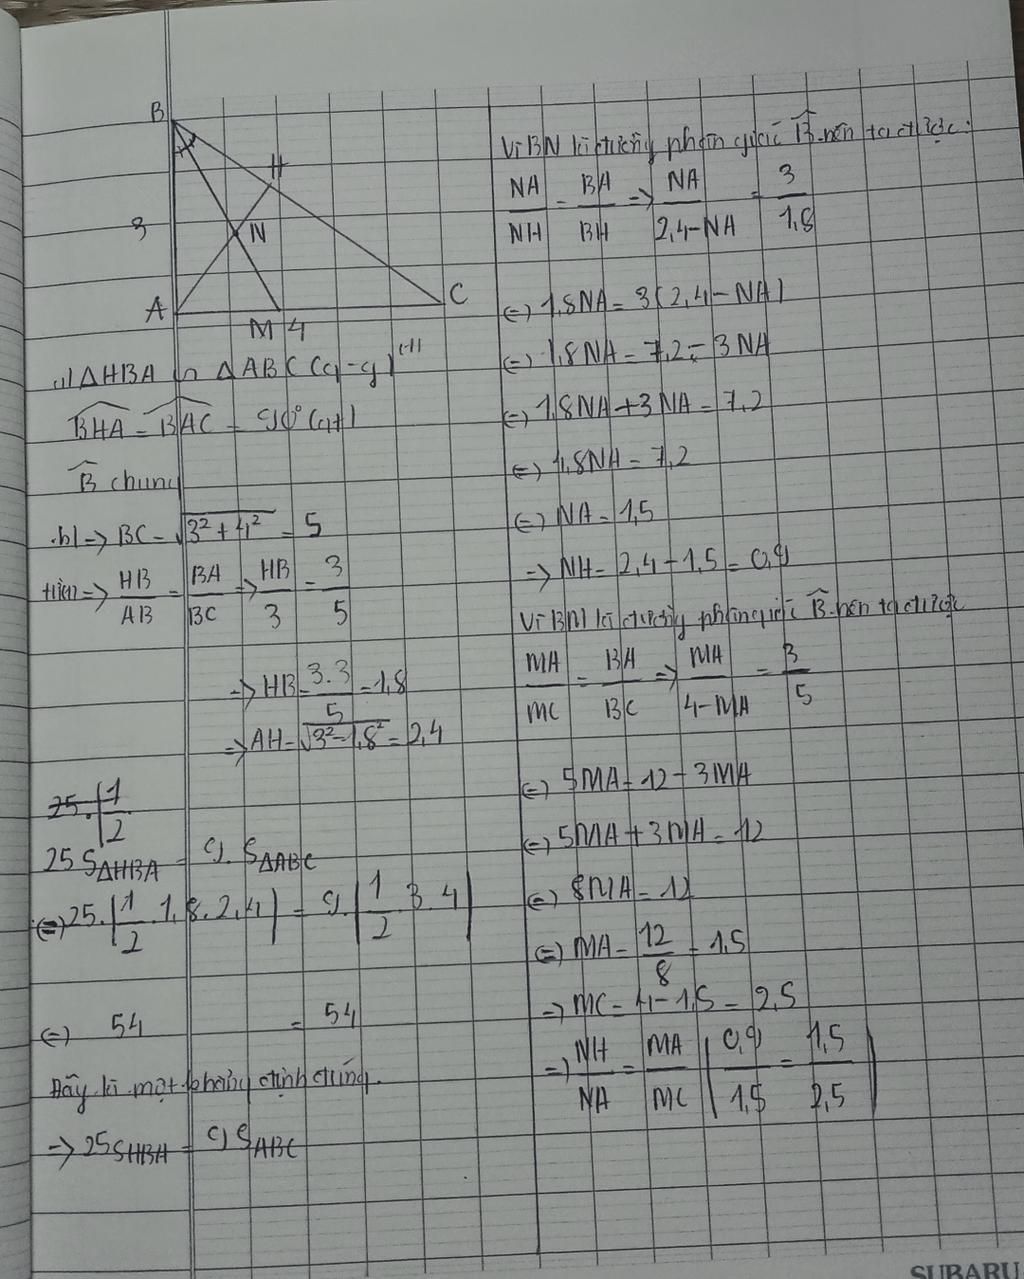 B
H
3
N
A
M 4
C
a) ΔHBA ∽ ΔABC (g-g)
BHA = BAC = 90° (gt)
B chung
b) => BC = √3²+4² = 5
từ (1) => HB/AB = BA/BC => HB/3 = 3/5
=> HB = 3.3/5 = 1,8
=> AH = √3²-1,8² = 2,4
25.(1/2
25 SΔHBA = 9. SΔABC
(=) 25.(1/2 1,8.2,4) = 9.(1/2 3.4)
(=) 54 = 54
Đây là một khẳng định đúng.
=> 25SHBA = 9SABC
Vì BN là đường phân giác B nên ta được:
NA/NH = BA/BH => NA/2,4-NA = 3/1,8
(=) 1,8NA = 3(2,4-NA)
(=) 1,8NA = 7,2 - 3NA
(=) 1,8NA + 3NA = 7,2
(=) 4,8NA = 7,2
(=) NA = 1,5
=> NH = 2,4 - 1,5 = 0,9
Vì BM là đường phân giác B nên ta được
MA/MC = BA/BC => MA/4-MA = 3/5
(=) 5MA = 12 - 3MA
(=) 5MA + 3MA = 12
(=) 8MA = 12
(=) MA = 12/8 = 1,5
=> MC = 4 - 1,5 = 2,5
=> NH/NA = MA/MC (0,9/1,5 = 1,5/2,5)
SUBARU